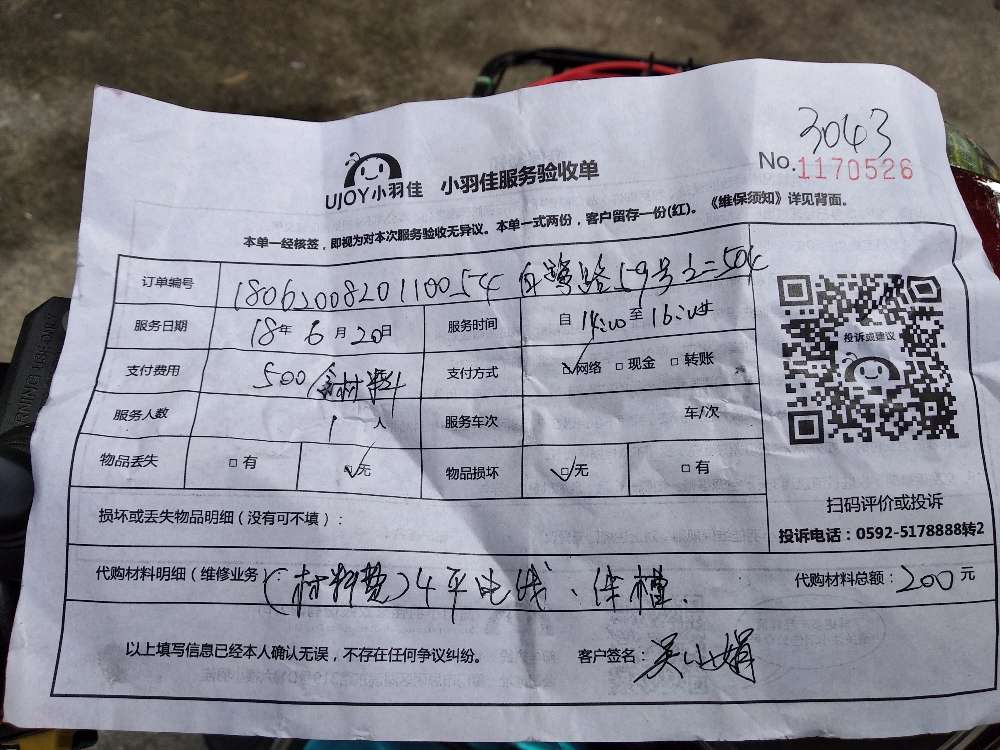 3043
No.1170526
UJOY小羽佳 小羽佳服务验收单
本单一经核签，即视为对本次服务验收无异议。本单一式两份，客户留存一份(红)。《维保须知》详见背面。
订单编号 1806200820110054 白鹭路59号之二504
服务日期 18年 6月 20日 服务时间 自 14:00 至 16:00
支付费用 500(含材料) 支付方式 网络 现金 转账
服务人数 1 人 服务车次 车/次
物品丢失 有 无 物品损坏 无 有
投诉或建议
扫码评价或投诉
投诉电话：0592-5178888转2
损坏或丢失物品明细（没有可不填）：
代购材料明细（维修业务）： (材料费) 4平电线、线槽. 代购材料总额：200元
以上填写信息已经本人确认无误，不存在任何争议纠纷。 客户签名：吴小娟